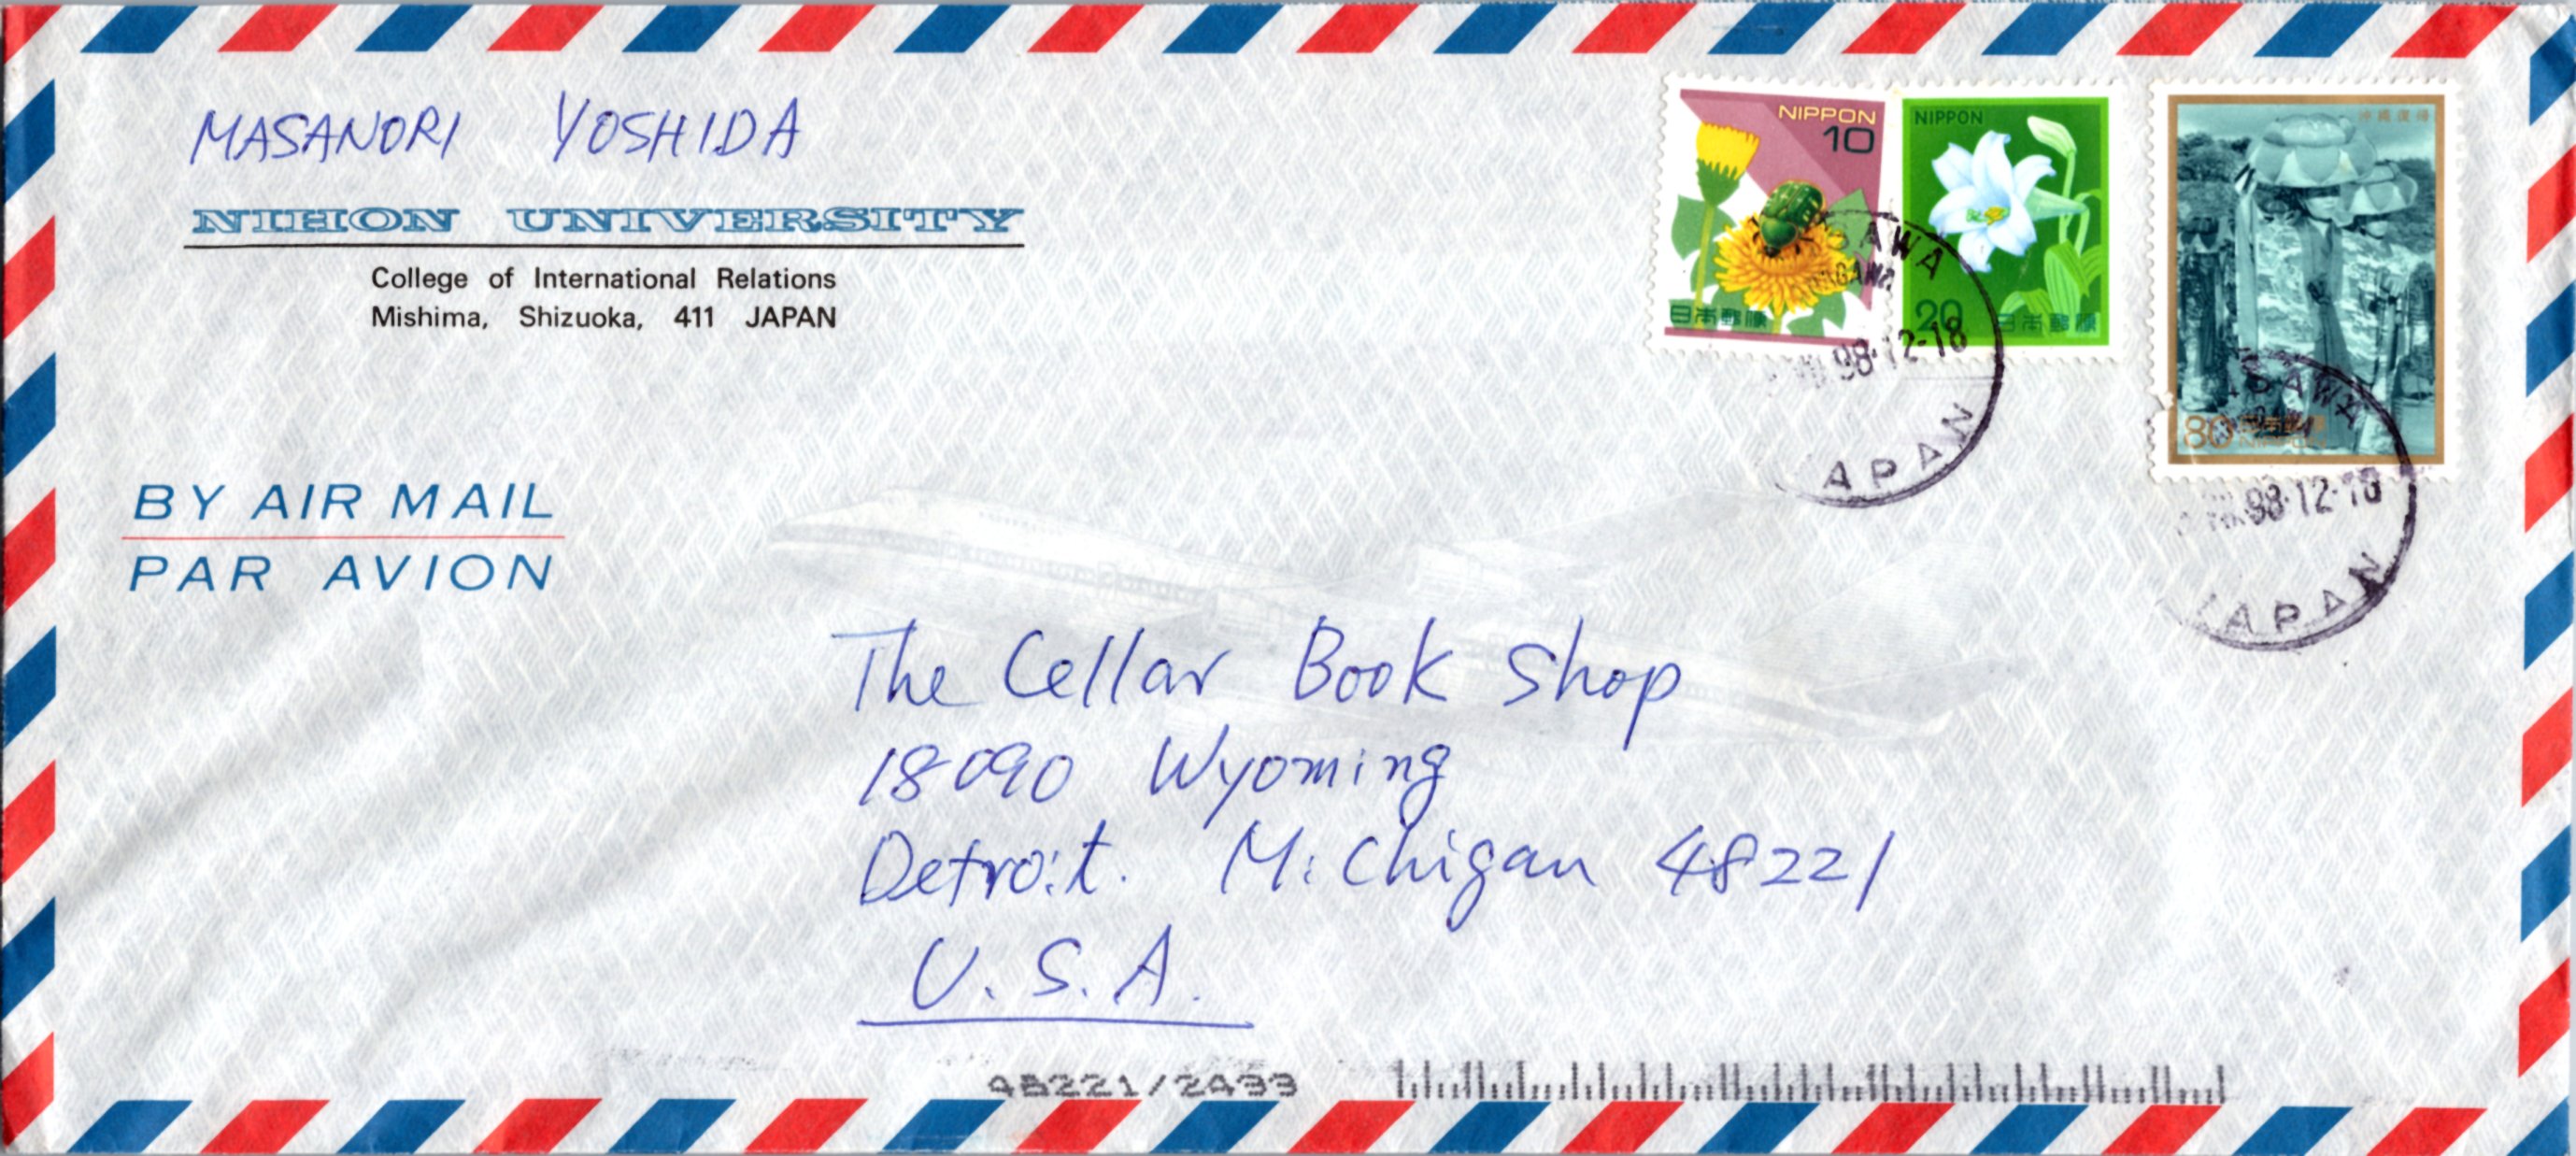 MASANORI YOSHIDA
NIHON UNIVERSITY
College of International Relations
Mishima, Shizuoka, 411 JAPAN
BY AIR MAIL
PAR AVION
NIPPON
10
日本郵便
NIPPON
20
日本郵便
沖縄復帰
80 日本郵便
NIPPON
98·12·18
98·12·18
The Cellar Book Shop
18090 Wyoming
Detroit. Michigan 48221
U.S.A.
48221/2433